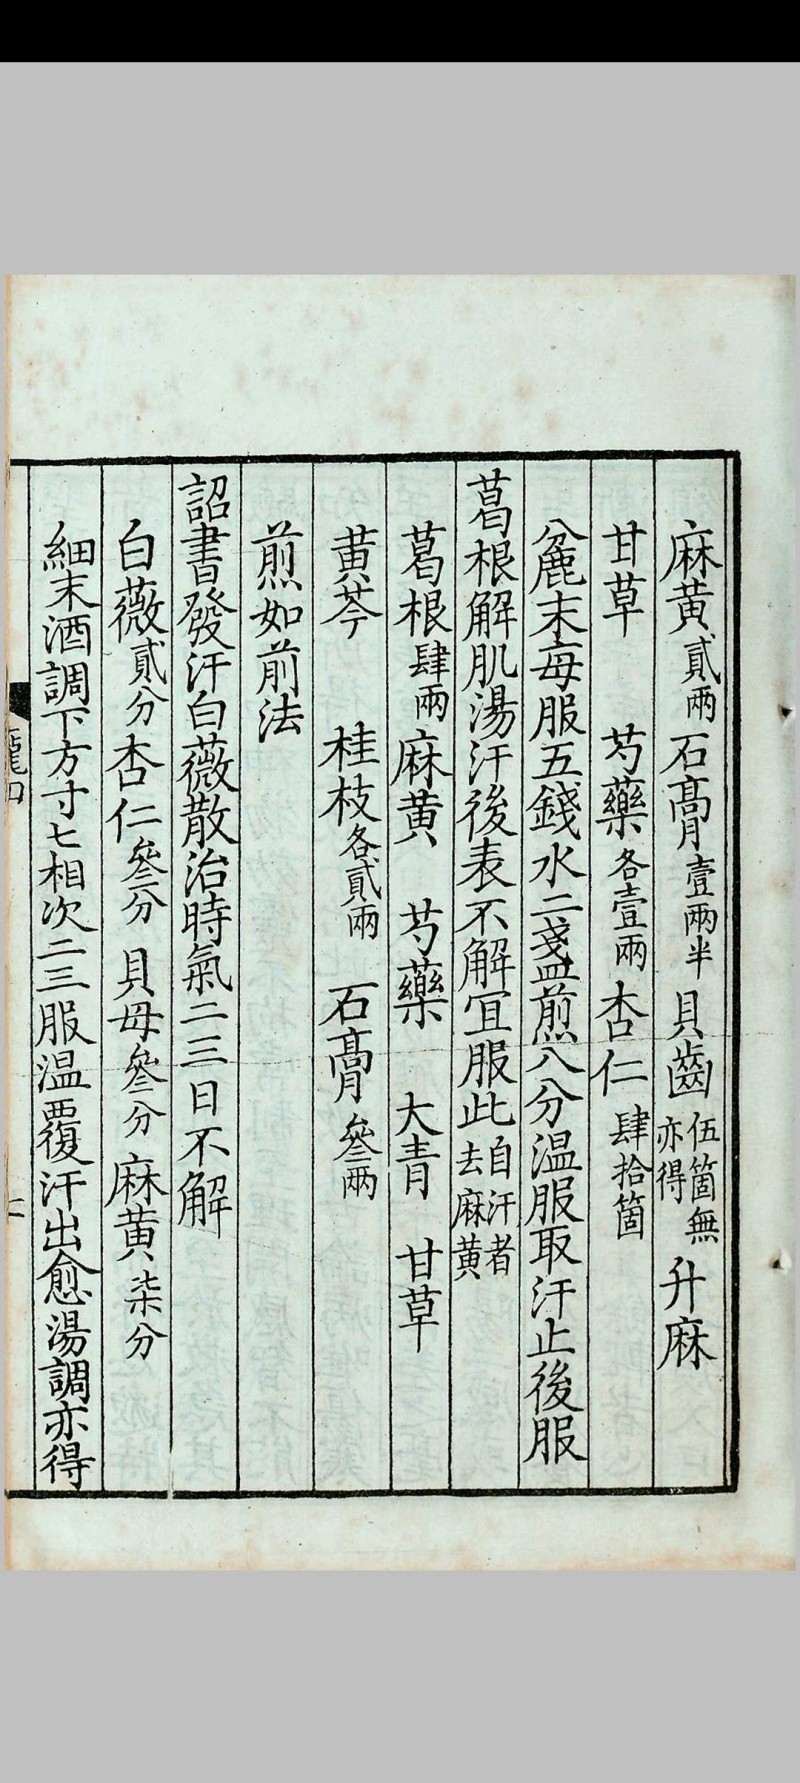 麻黃貳兩石膏壹兩半　貝齒伍箇無亦得　升麻
甘草　芍藥各壹兩　杏仁肆拾箇
麄末每服五錢水二盞煎八分溫服取汗止後服
葛根解肌湯汗後表不解宜服此自汗者去麻黃
葛根肆兩麻黃　芍藥　大青　甘草
黃芩　桂枝各貳兩　石膏叁兩
煎如前法
詔書發汗白薇散治時氣二三日不解
白薇貳分杏仁叁分　貝母叁分　麻黃柒分
細末酒調下方寸匕相次二三服溫覆汗出愈湯調亦得